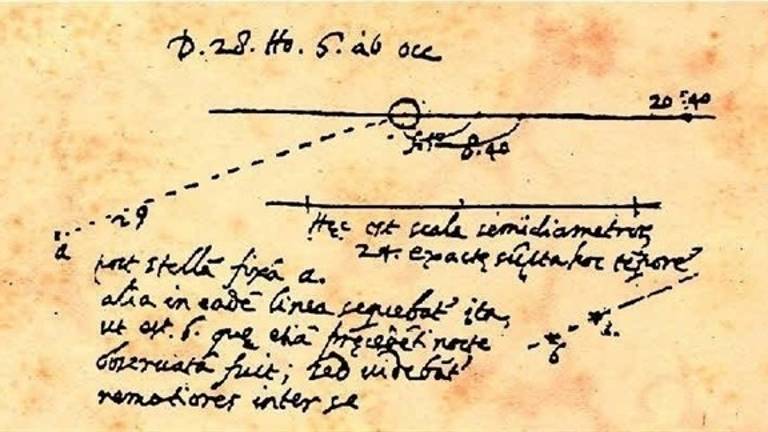 D. 28. Ho. 6. ab occ
20 : 40
8.40
29
a
Hęc est scala
24. exactę sũpta hoc tẽpore
post stellã fixã a.
alia in eadẽ linea sequebat' ita,
ut est. b. quę etiã pręcedẽti nocte
observata fuit; sed videbãt'
remotiores inter se
b a.